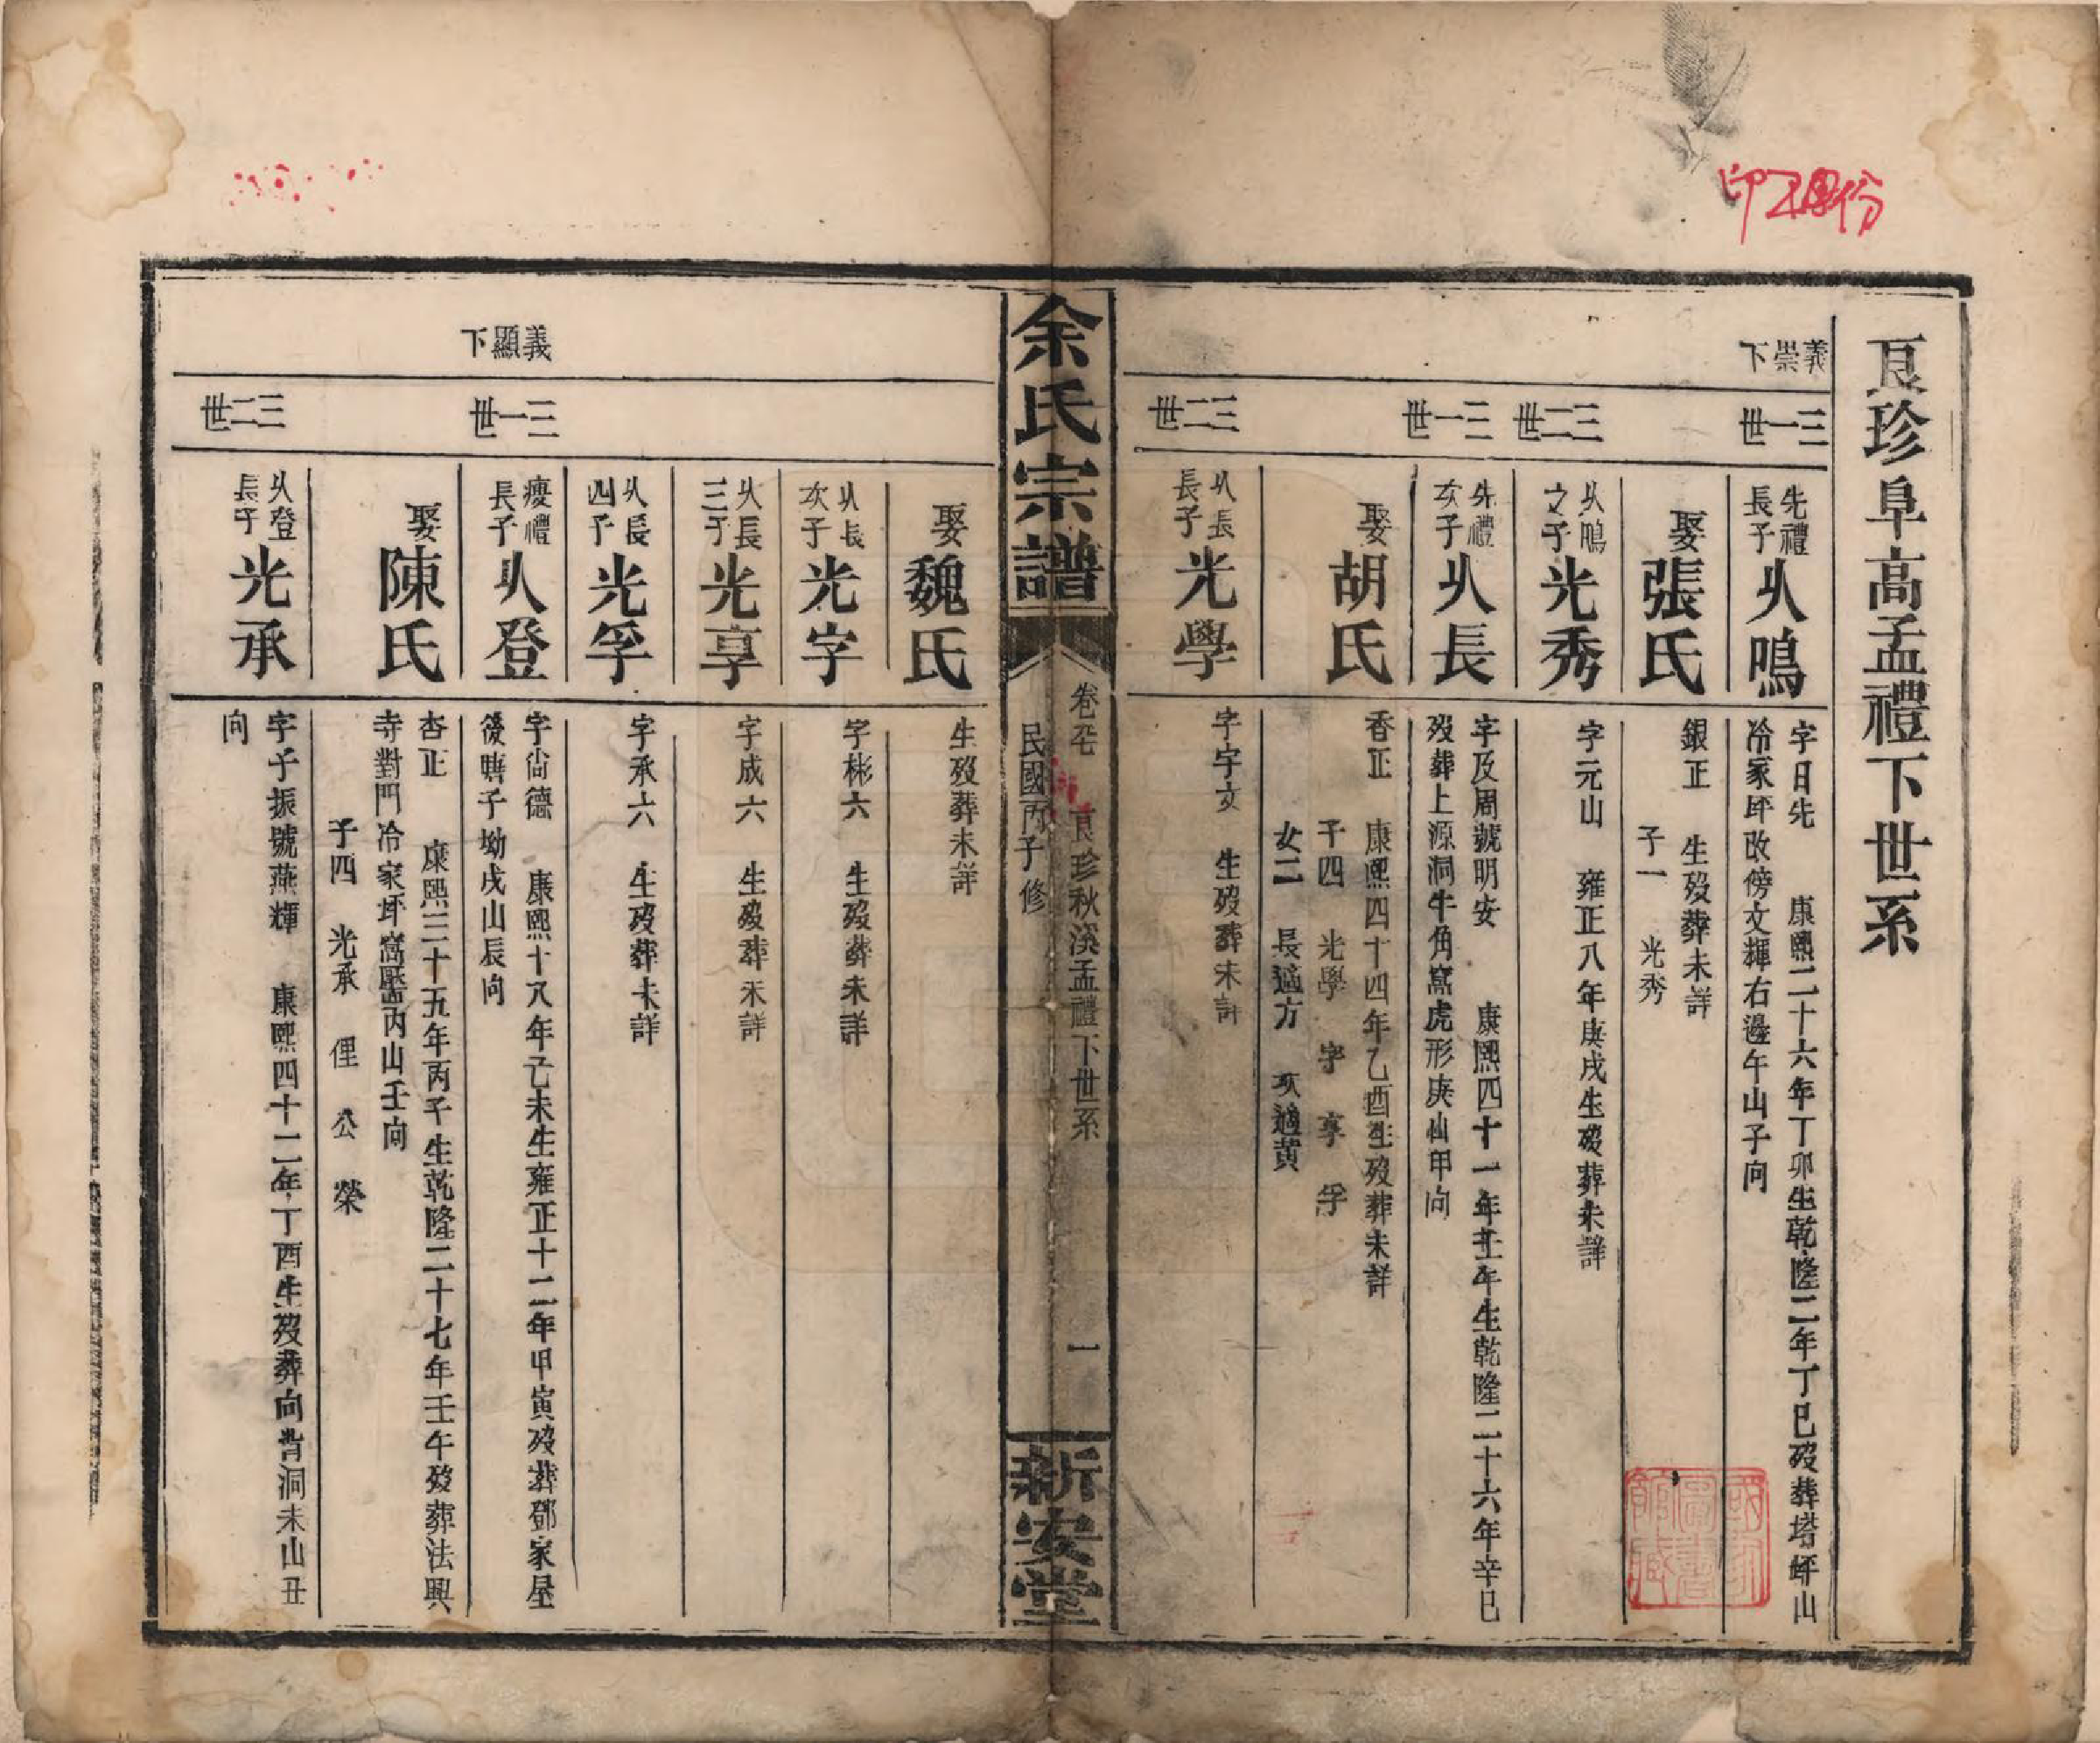 印20份
良珍阜高孟禮下世系
義崇下
三一世
先禮長子
从鳴
字日先 康熙二十六年丁卯生乾隆二年丁巳歿葬塔坪山
冷家坪改傍文輝右邊午山子向
娶張氏
銀正 生歿葬未詳
子一 光秀
三二世
从鳴之子
光秀
字元山 雍正八年庚戌生歿葬未詳
三一世
先禮次子
从長
字及周號明安 康熙四十一年壬午生乾隆二十六年辛巳
歿葬上源洞牛角窩虎形庚山甲向
娶胡氏
香正 康熙四十四年乙酉生歿葬未詳
子四 光學 字 享 孚
女二 長適方 次適黄
三二世
从長長子
光學
字字文 生歿葬未詳
余氏宗譜
良珍秋溪孟禮下世系 一
民國丙子修
新安堂
娶魏氏
生歿葬未詳
从長次子
光字
字彬六 生歿葬未詳
从長三子
光享
字成六 生歿葬未詳
从長四子
光孚
字承六 生歿葬未詳
義顯下
三一世
慶禮長子
从登
字尙德 康熙十八年己未生雍正十二年甲寅歿葬鄧家屋
後塘子坳戌山辰向
娶陳氏
杏正 康熙三十五年丙子生乾隆二十七年壬午歿葬法興
寺對門冷家坪窩壓丙山壬向
子四 光承 俚 公 榮
三二世
从登長子
光承
字子振號燕輝 康熙四十二年丁酉生歿葬向背洞未山丑
向
國家圖書館藏